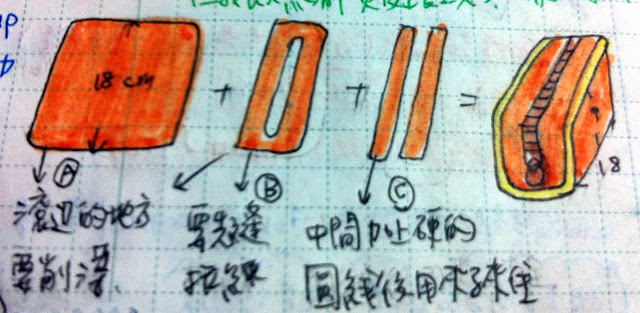 18 cm
+ + =
18
Ⓐ Ⓑ Ⓒ
滾边的地方
要削薄
要先縫
拉鍊
中間加上硬的
圓線後用夾子夾住